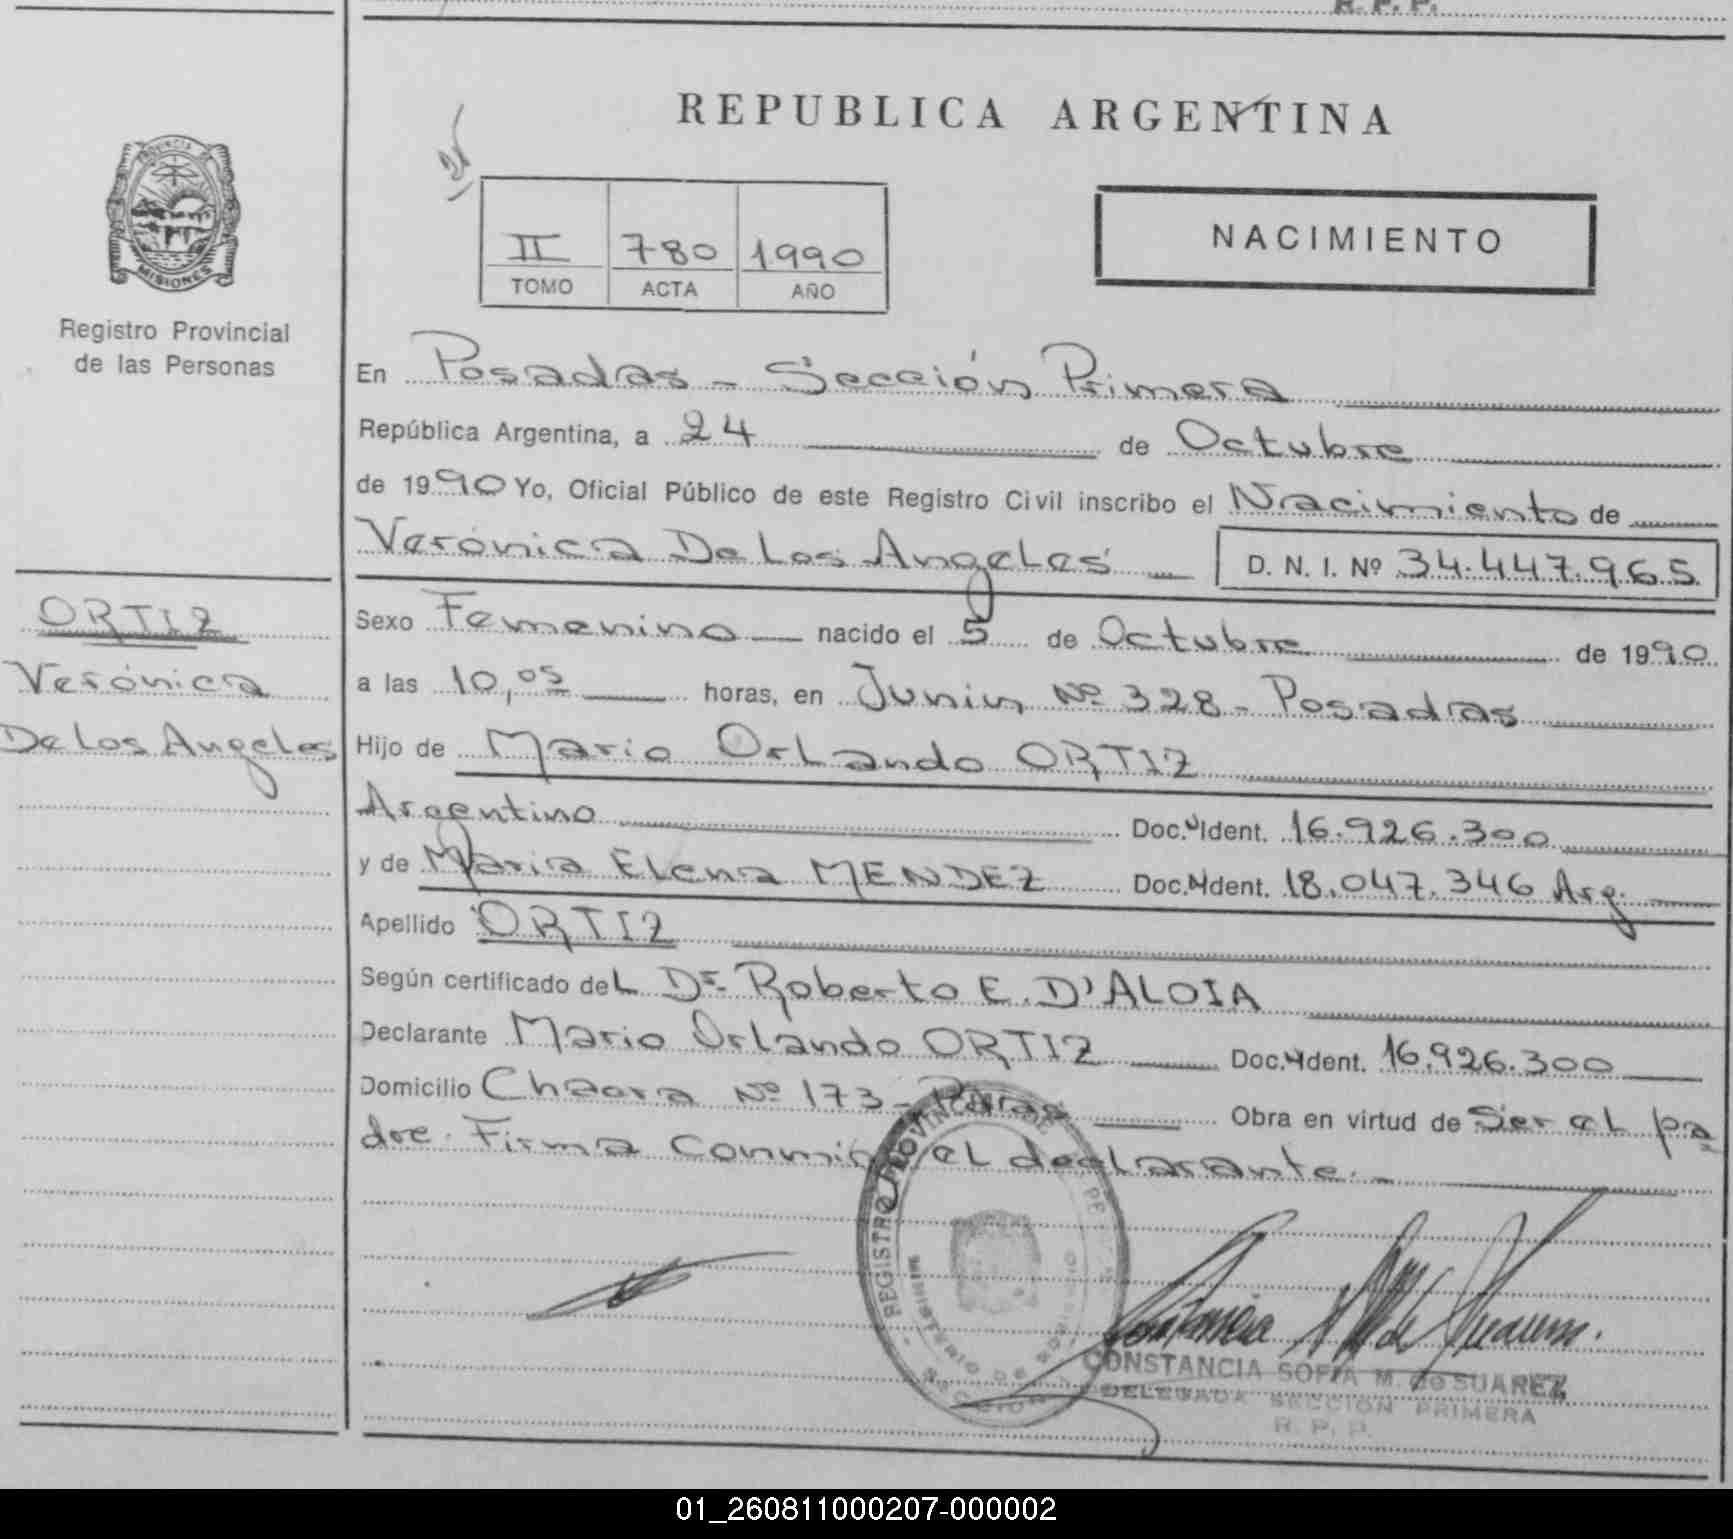 R. P. P.
REPUBLICA ARGENTINA
PROVINCIA DE
MISIONES
Registro Provincial
de las Personas
II 780 1990
TOMO ACTA AÑO
NACIMIENTO
En Posadas - Sección Primera
República Argentina, a 24 de Octubre
de 1990 Yo, Oficial Público de este Registro Civil inscribo el Nacimiento de
Verónica De Los Angeles D. N. I. Nº 34.447.965
ORTIZ
Verónica
De Los Angeles
Sexo Femenino nacido el 5 de Octubre de 1990
a las 10,05 horas, en Junin Nº 328 - Posadas
Hijo de Mario Orlando ORTIZ
Argentino Doc. Ident. 16.926.300
y de Maria Elena MENDEZ Doc. Ident. 18.047.346 Arg.
Apellido ORTIZ
Según certificado del Dr. Roberto E. D'ALOIA
Declarante Mario Orlando ORTIZ Doc. Ident. 16.926.300
Domicilio Chacra Nº 173 - Obra en virtud de Ser el pa
dre. Firma Conmigo el declarante. -
REGISTRO PROVINCIAL DE
MINISTERIO DE GOBIERNO
CONSTANCIA SOFIA M. de SUAREZ
DELEGADA SECCION PRIMERA
R. P. P.
01_260811000207-000002